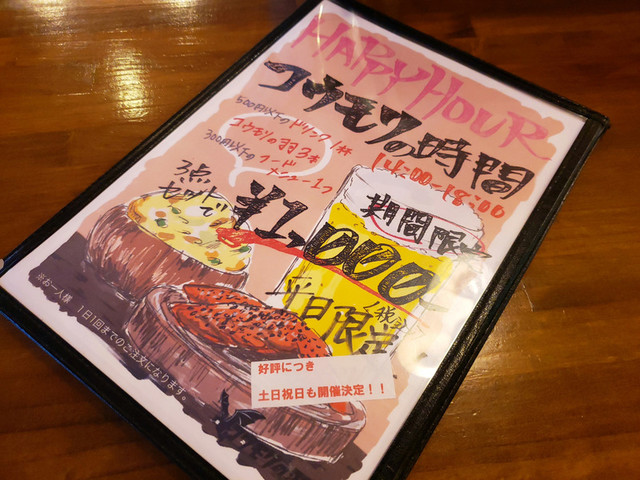 HAPPY HOUR
コウモリの時間
14:00-18:00
500円以下のドリンク1杯
コウモリの羽3本
300円以下のフードメニュー1つ
3点
セットで
¥1,000-
期間限定
平日限定
好評につき
土日祝日も開催決定！！
※お一人様 1日1回までのご注文になります。